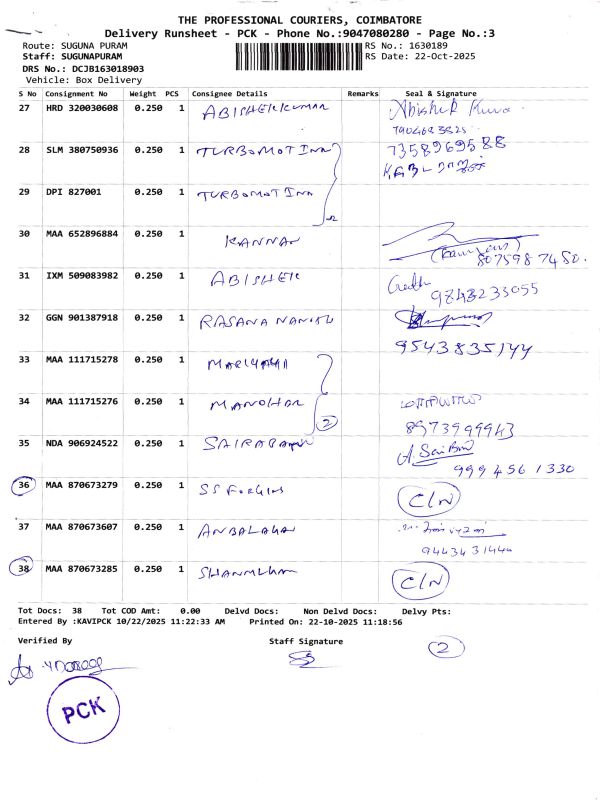 THE PROFESSIONAL COURIERS, COIMBATORE
Delivery Runsheet - PCK - Phone No.:9047080280 - Page No.:3
Route: SUGUNA PURAM RS No.: 1630189
Staff: SUGUNAPURAM RS Date: 22-Oct-2025
DRS No.: DCJB163018903
Vehicle: Box Delivery
S No Consignment No Weight PCS Consignee Details Remarks Seal & Signature
27 HRD 320030608 0.250 1 ABISHEKKUMAR Abishek
28 SLM 380750936 0.250 1 TURBOMOT INN 7358969588
29 DPI 827001 0.250 1 TURBOMOT INN
30 MAA 652896884 0.250 1 KANNAN
8075987480.
31 IXM 509083982 0.250 1 ABISHEK
9248233055
32 GGN 901387918 0.250 1 RASANA
9543835144
33 MAA 111715278 0.250 1
34 MAA 111715276 0.250 1 MANOHAR
2 8973999943
35 NDA 906924522 0.250 1 SAIRABANU A. SaiBanu
9994561330
36 MAA 870673279 0.250 1 SS FORGINS C/N
37 MAA 870673607 0.250 1 ANBALAGAN
9443431444
38 MAA 870673285 0.250 1 SHANMUGAM C/N
Tot Docs: 38 Tot COD Amt: 0.00 Delvd Docs: Non Delvd Docs: Delvy Pts:
Entered By :KAVIPCK 10/22/2025 11:22:33 AM Printed On: 22-10-2025 11:18:56
Verified By Staff Signature
2
PCK